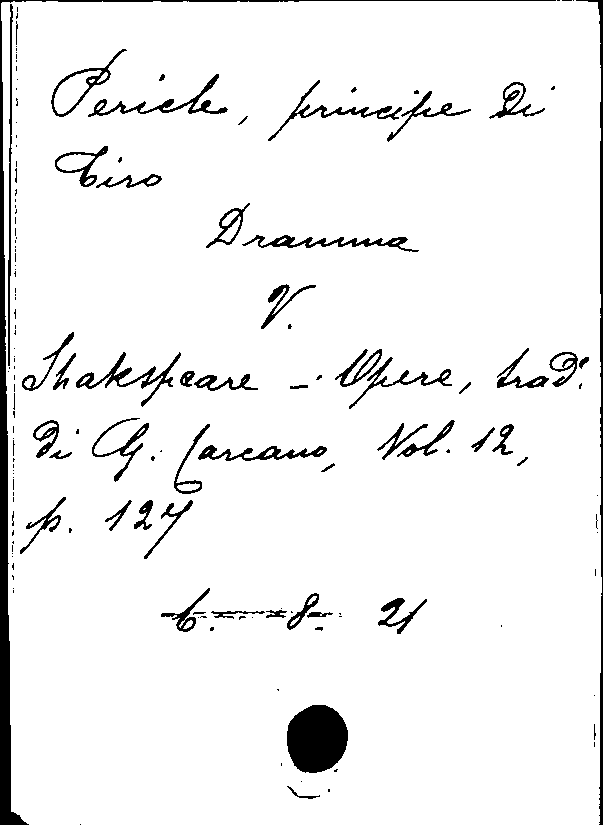 Pericle, principe di
Tiro
Dramma
V.
Shakspeare - Opere, trad.
di G. Carcano, Vol. 12,
p. 127
6. 8. 21